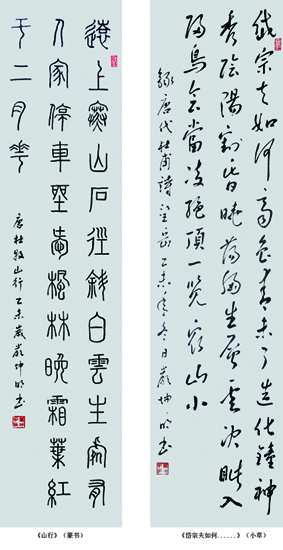 遠上寒山石徑斜白雲生處有
人家停車坐愛楓林晚霜葉紅
于二月花
唐杜牧山行乙未歲嚴坤明书
《山行》（篆书）
岱宗夫如何齊魯青未了造化鍾神
秀陰陽割昏曉蕩胸生層雲决眥入
歸鳥會當凌絕頂一覽衆山小
錄唐代杜甫詩望岳乙未年冬日嚴坤明书
《岱宗夫如何......》（小草）